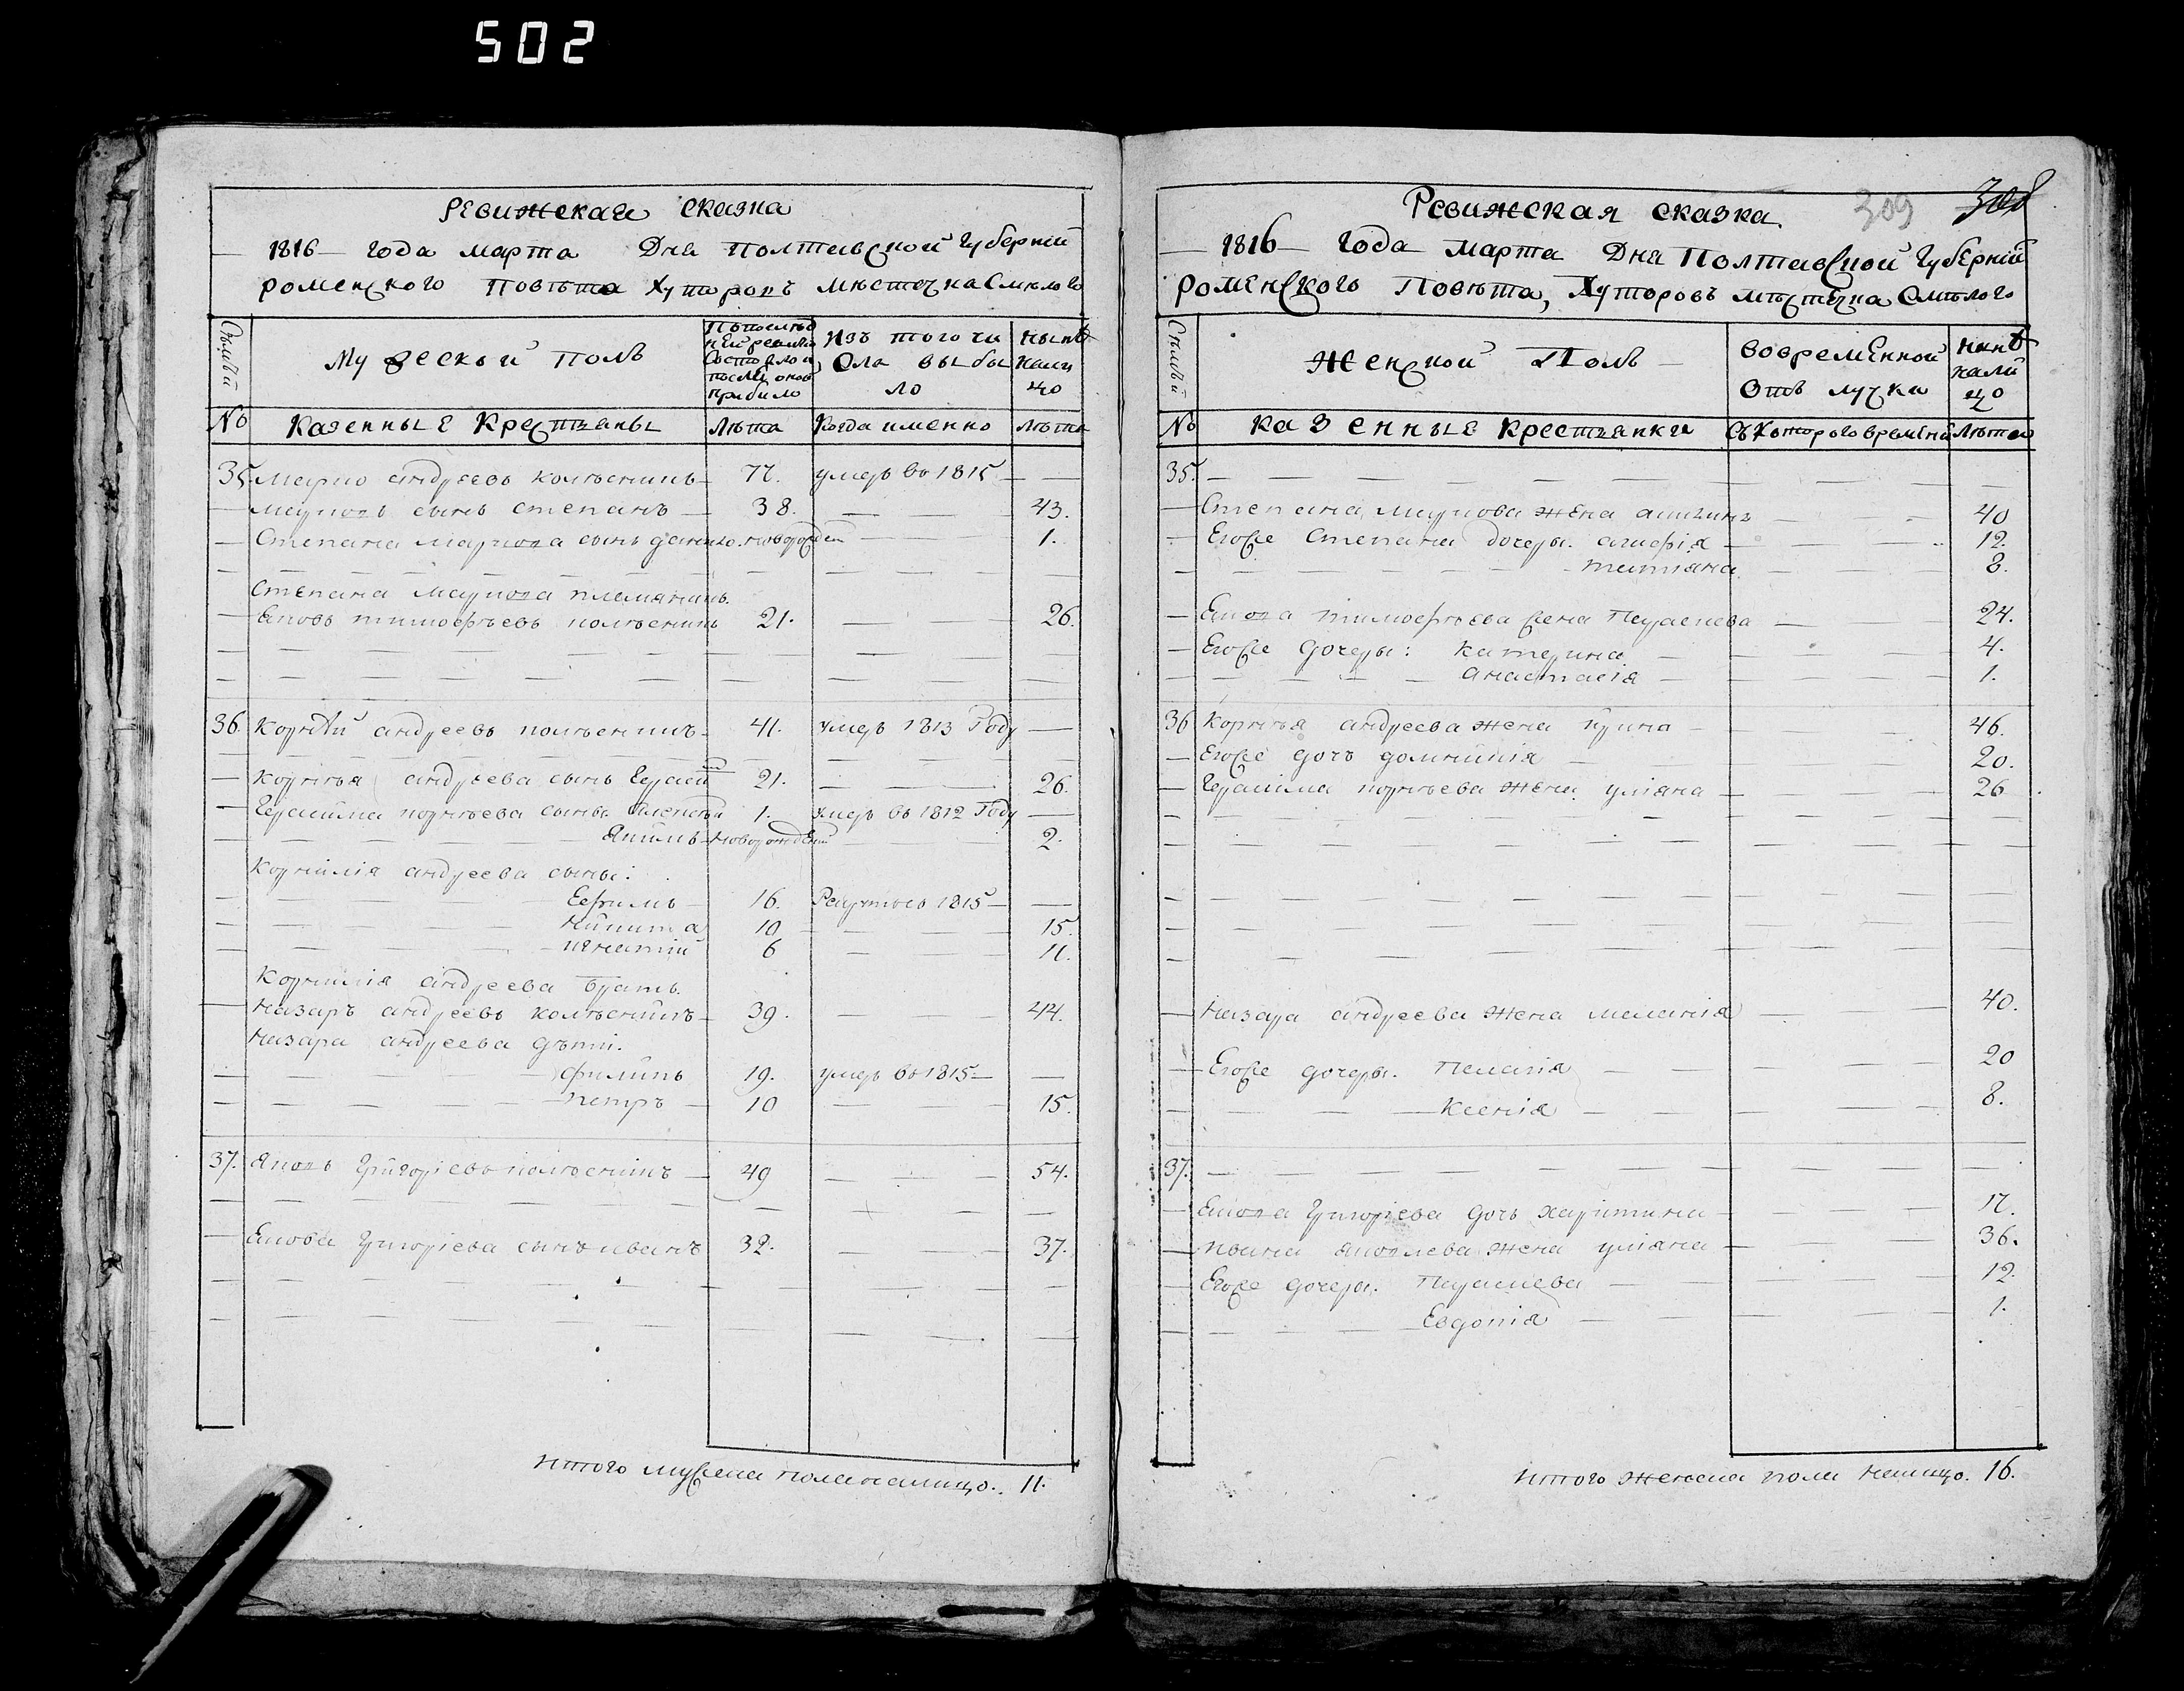 502
Ревижская сказка
1816 года марта Дня Полтавской Губерній
роменского Повѣта Хуторовъ мѣстечка Смѣлого
Семьи
Мужескъй полъ
По последней ревизій состояло и после оной прибыло
Изъ того числа выбыло
Нынѣ налицо
№ Казенные Крестьяны Лѣта Когда именно Лѣта
35. андреевъ колѣснинъ 77. умеръ во 1815
сынъ степанъ 38. 43.
Степана сынъ данило новорожден 1.
Степана племянникъ
Яковъ тимофѣевъ колѣснинъ 21. 26.
36. Корнѣй андреевъ колѣснинъ 41. умеръ 1813 Году
Корнѣя андреева сынъ Герасим 21. 26.
Герасима корнѣева сыны Алексѣй 1. умеръ въ 1812 Году
Якимъ новорожден 2.
Корнилія андреева сыны:
Ефимъ 16. Рекрутъ въ 1815
Никита 10 15.
игнатій 6 11.
Корнилія андреева братъ
Назаръ андреевъ колѣснинъ 39. 44.
Назара андреева дѣти.
филипъ 19. умеръ во 1815
петръ 10 15.
37. Яковъ Григоріевъ колѣснинъ 49 54.
Якова Григоріева сынъ иванъ 32. 37.
Итого мужеска пола налицо. 11.
309 308
Ревижская сказка.
1816 Года марта Дня Полтавской Губерній
роменского Повѣта, Хуторовъ мѣстечка Смѣлого
Семьи
Женской Полъ
Во временной отлучки
Нынѣ налицо
№ Казенные крестьянки Съ Которого времѣни Лѣта
35.
Степана жена 40
Егоже Степана дочеры. агафія 12.
татіяна 8.
Якова тимофѣева жена Параскева 24.
Егоже дочеры: Катерина 4.
анастасія 1.
36 Корнѣя андреева жена ирина 46.
Егоже дочъ домникія 20.
Герасима корнѣева жена уліяна 26
Назара андреева жена меланія 40.
Егоже дочеры. Пелагія 20
Ксенія 8.
37.
Якова Григоріева дочъ харитина 17.
ивана яковлева жена уліяна 36.
Егоже дочеры. Параскева 12.
Евдокія 1.
Итого женска пола налицо. 16.